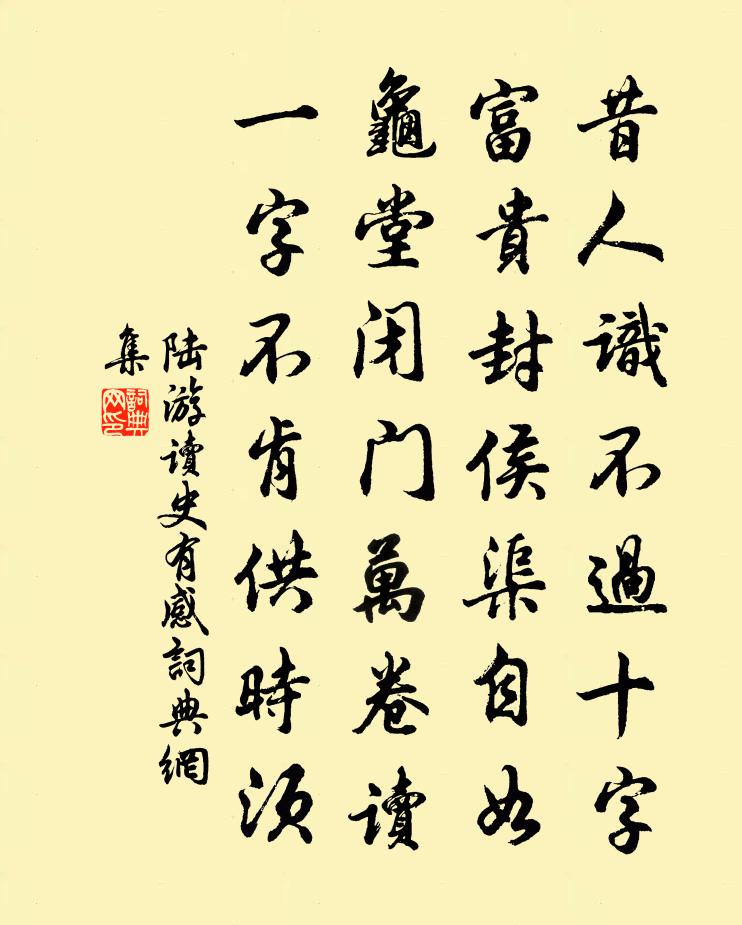 昔人識不過十字
富貴封侯渠自如
龜堂闭门萬卷读
一字不肯供時須
陆游讀史有感詞典網
集
詞典
网印